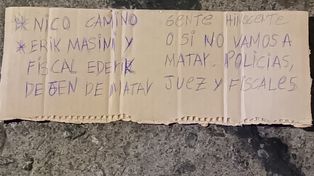 * NICO CAMINO GENTE HINOCENTE
* ERIK MASINI Y O SI NO VAMOS A
FISCAL EDERK MATAR. POLICIAS,
DEJEN DE MATAR JUEZ Y FISCALES